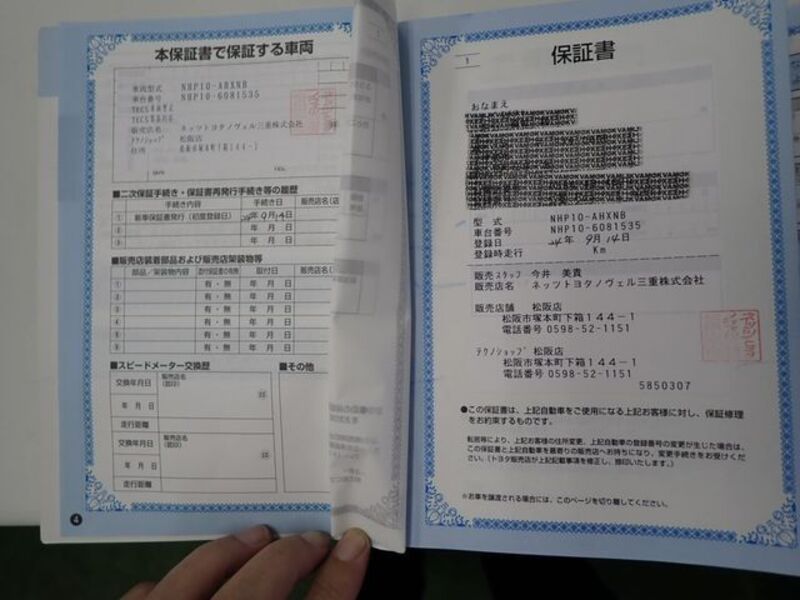 本保証書で保証する車両
車両型式 NHP10-AHXNB
車台番号 NHP10-6081535
販売店名 ネッツトヨタノヴェル三重株式会社
テクノショップ 松阪店
住所 松阪市塚本町下箱144-1
■二次保証手続き・保証書再発行手続き等の履歴
手続き内容 手続き日 販売店名(店
① 新車保証書発行(初度登録日) 24年9月14日
② 年 月 日
③ 年 月 日
■販売店装着部品および販売店架装物等
部品/架装物内容 添付保証書の有無 取付日 販売店名(
① 有・無 年 月 日
② 有・無 年 月 日
③ 有・無 年 月 日
④ 有・無 年 月 日
⑤ 有・無 年 月 日
⑥ 有・無 年 月 日
■スピードメーター交換歴
■その他
交換年月日 販売店名
(認印)
年 月 日
走行距離
交換年月日 販売店名
(認印)
年 月 日
走行距離
4
1
保証書
おなまえ
型式 NHP10-AHXNB
車台番号 NHP10-6081535
登録日 24年 9月 14日
登録時走行 Km
販売スタッフ 今井 美貴
販売店名 ネッツトヨタノヴェル三重株式会社
販売店舗 松阪店
松阪市塚本町下箱144-1
電話番号 0598-52-1151
テクノショップ 松阪店
松阪市塚本町下箱144-1
電話番号 0598-52-1151
5850307
●この保証書は、上記自動車をご使用になる上記お客様に対し、保証修理
をお約束するものです。
転居等により、上記お客様の住所変更、上記自動車の登録番号の変更が生じた場合は、
この保証書と上記自動車を最寄りの販売店へお持ちになり、変更手続きをお受けくだ
さい。(トヨタ販売店が上記記載事項を修正し、捺印いたします。)
※お車を譲渡される場合には、このページを切り離してください。